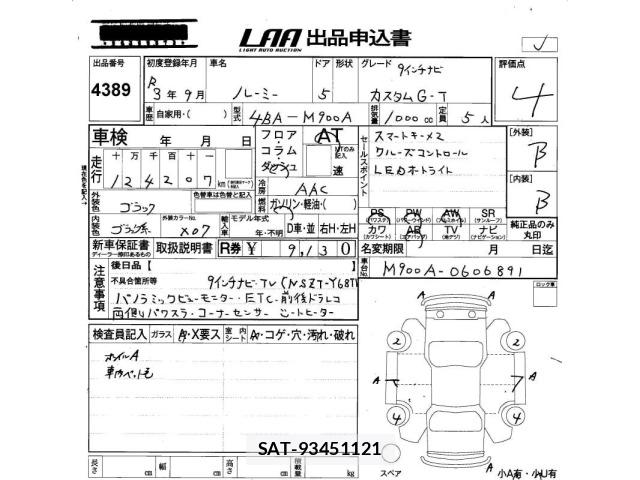 LAA 出品申込書
LIGHT AUTO AUCTION
出品番号
4389
初度登録年月 車名 ドア 形状 グレード 9インチナビ
R3年9月 ルーミー 5 カスタムG-T
評価点
4
車歴 自家用・( ) 型式 4BA-M900A 排気量 1000cc 定員 5人
車検 年 月 日
フロア AT
コラム MTのみ記入
ダッシュ 速
セールスポイント
スマートキー×2
クルーズコントロール
LEDオートライト
[外装]
B
[内装]
B
走行 十万千百十
124207km
冷房 AAC
燃料 ガソリン・軽油・( )
外装色 ブラック
色替車は色替と記入
内装色 ブラック系
外装カラーNo. X07
輸入車 モデル年式
年・不明 D車・並 右H・左H
PS PW AW SR
(パワステ) (パワーウインド) (アルミホイル) (サンルーフ)
カワ AB TV ナビ
(カワシート) (エアバッグ) (地デジ) (ナビゲーション)
純正品のみ丸印
新車保証書 取扱説明書 R券 ¥ 9,130
ディーラー捺印あるもの
名変期限 月 日迄
注意事項
後日品【
不具合箇所等 9インチナビ・TV(NSZT-Y68T)
パノラミックビューモニター・ETC・前後ドラレコ
両側パワスラ・コーナーセンサー シートヒーター
車台No. M900A-0606891
ロック車
検査員記入 ガラス A・X要ス 室内シート A・コゲ・穴・汚れ・破れ
ホイルA
車内ペット毛
2 2
A A
4 4
A
スペア
小A有・小U有
長さ cm 幅 cm 高さ cm 積載量 kg
SAT-93451121